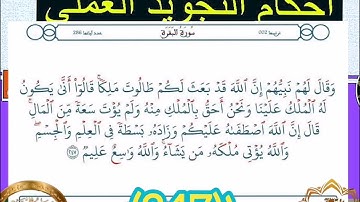 احكام التجويد العملي
سُورَةُ البَقَرَةِ
وَقَالَ لَهُمْ نَبِيُّهُمْ إِنَّ ٱللَّهَ قَدْ بَعَثَ لَكُمْ طَالُوتَ مَلِكًا ۚ قَالُوٓا۟ أَنَّىٰ يَكُونُ
لَهُ ٱلْمُلْكُ عَلَيْنَا وَنَحْنُ أَحَقُّ بِٱلْمُلْكِ مِنْهُ وَلَمْ يُؤْتَ سَعَةً مِّنَ ٱلْمَالِ ۚ
قَالَ إِنَّ ٱللَّهَ ٱصْطَفَىٰهُ عَلَيْكُمْ وَزَادَهُۥ بَسْطَةً فِى ٱلْعِلْمِ وَٱلْجِسْمِ ۖ
وَٱللَّهُ يُؤْتِى مُلْكَهُۥ مَن يَشَآءُ ۚ وَٱللَّهُ وَٰسِعٌ عَلِيمٌ ٢٤٧